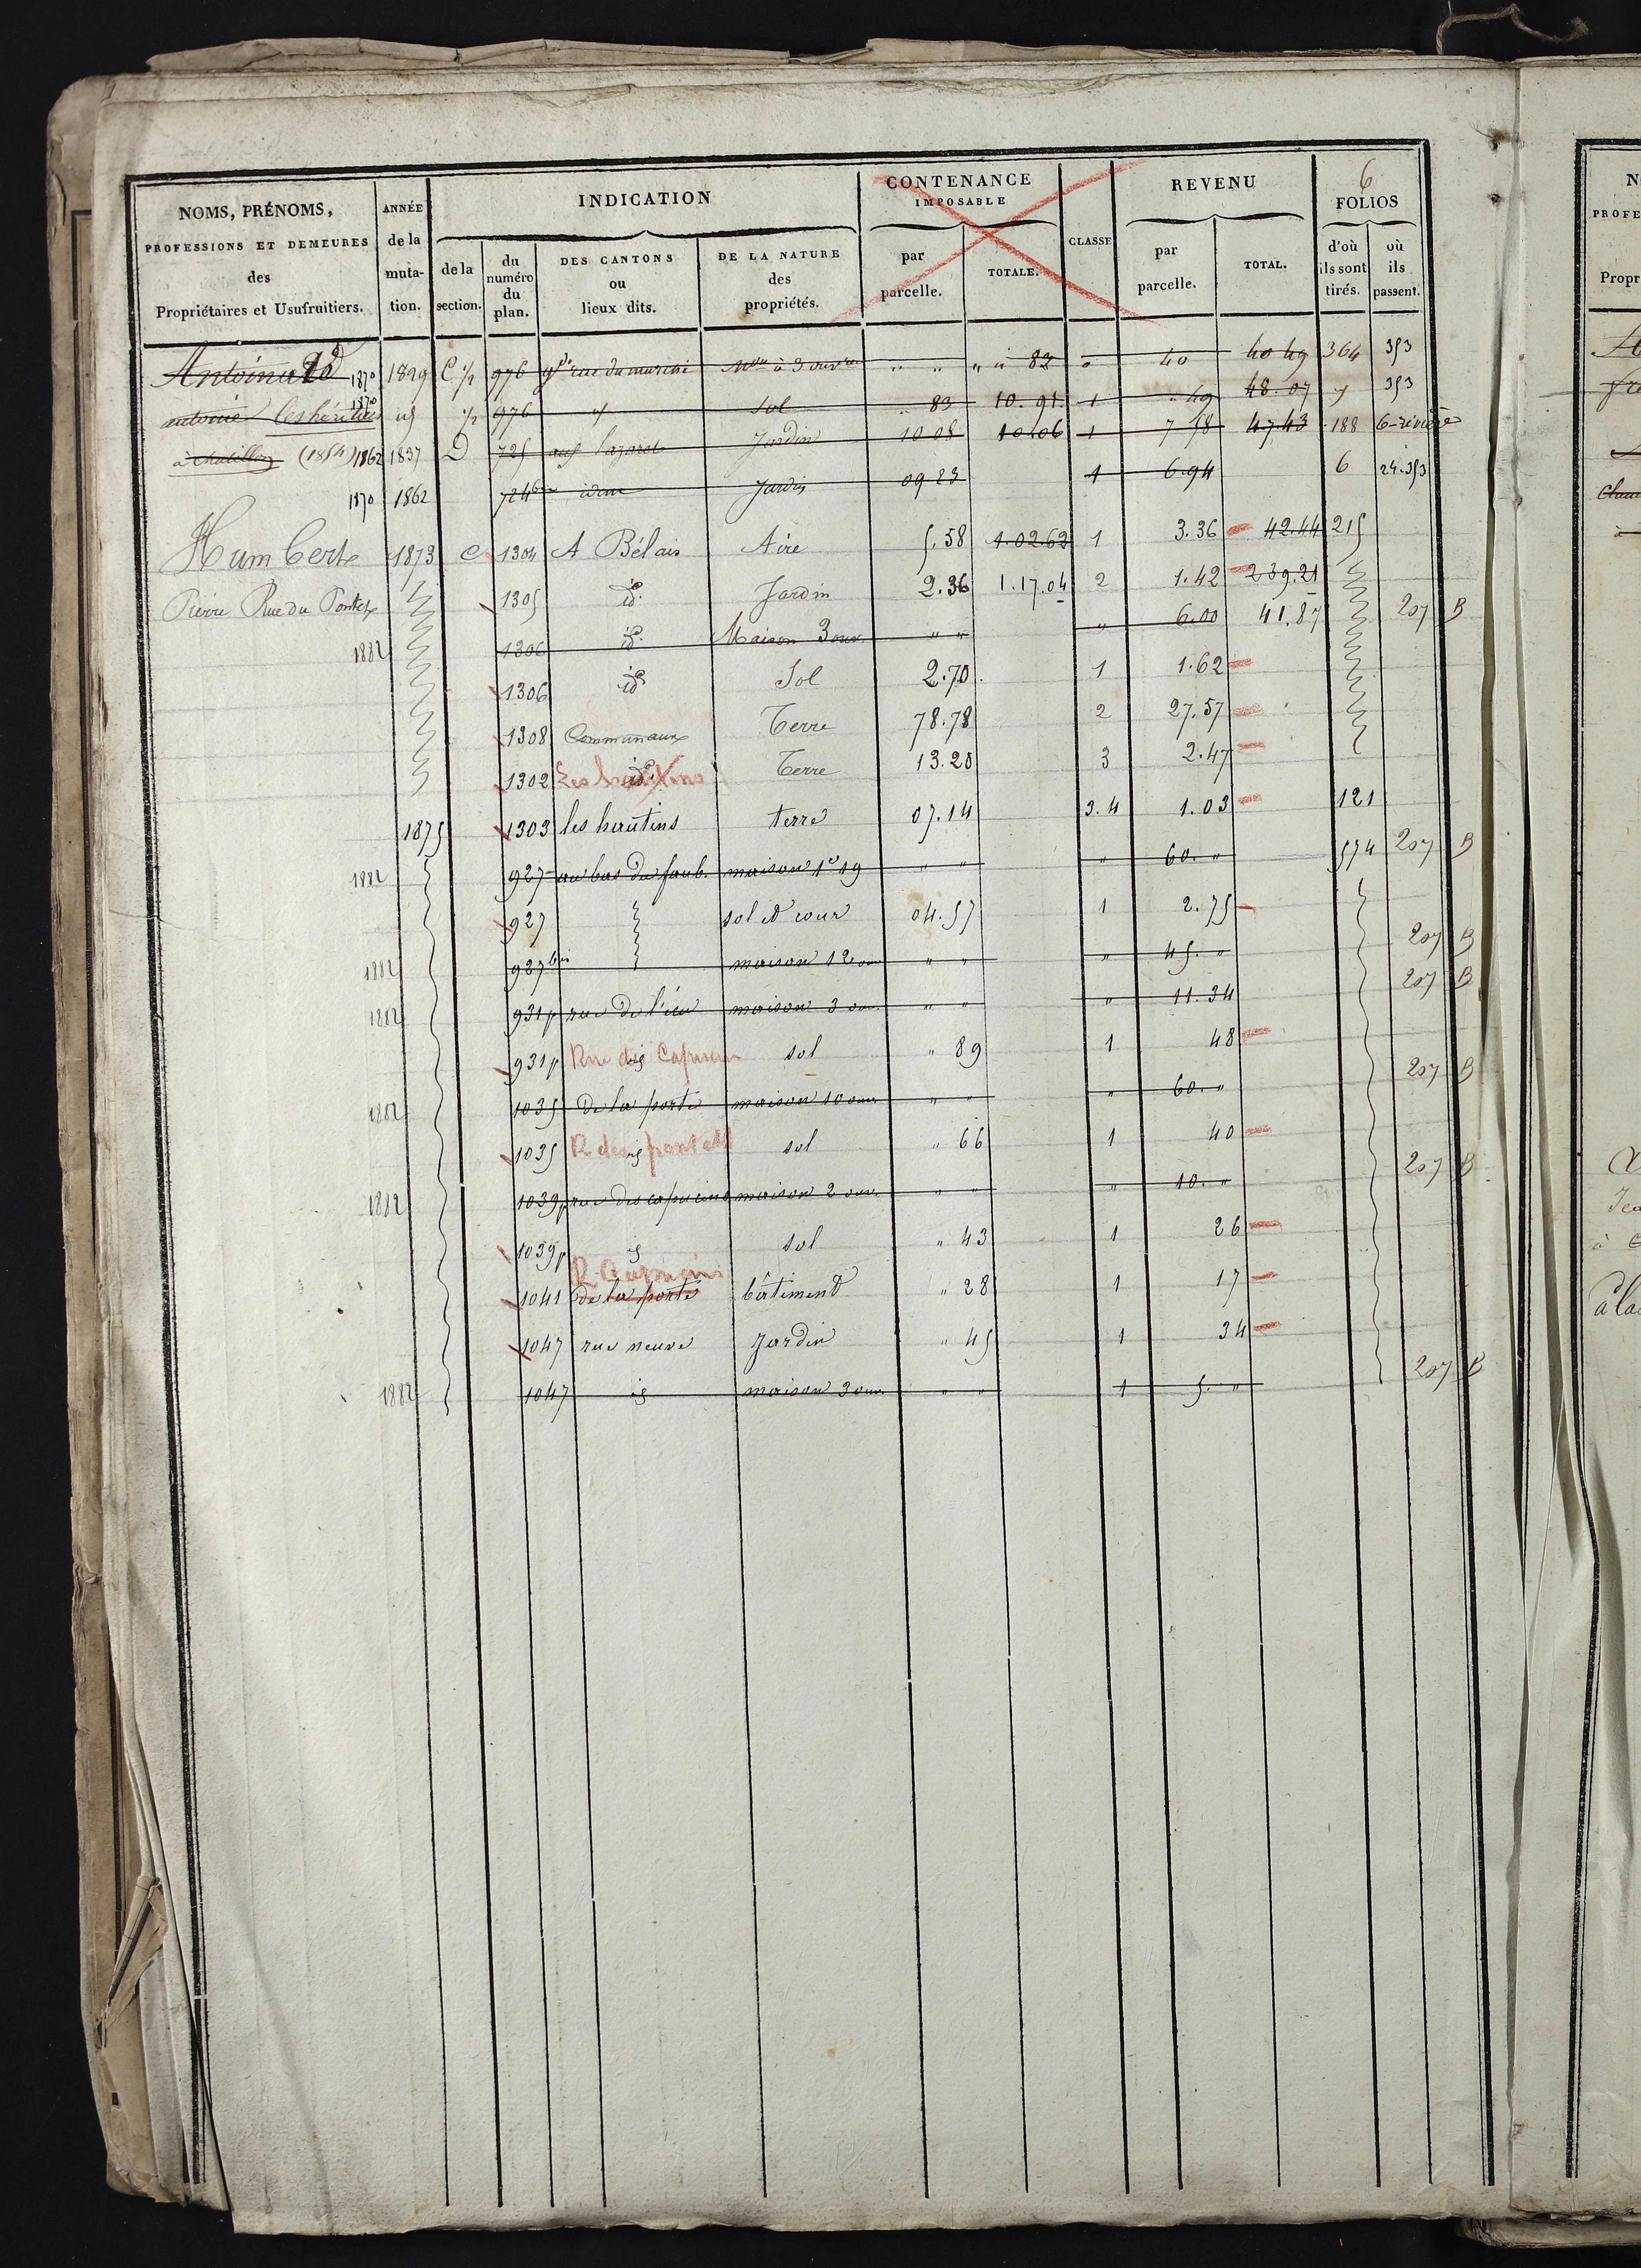 6
NOMS, PRÉNOMS, PROFESSIONS ET DEMEURES des Propriétaires et Usufruitiers. ANNÉE de la muta-tion. INDICATION de la section. du numéro du plan. DES CANTONS ou lieux dits. DE LA NATURE des propriétés. CONTENANCE IMPOSABLE par parcelle. TOTALE. CLASSE REVENU par parcelle. TOTAL. FOLIOS d'où ils sont tirés. où ils passent.
1870 1829 C ½ 976 gde rue du marché Mon à 3 ouvres " " " " 83 " 40 40 49 364 353
antoine les héritiers 1870 id ½ 976 id Sol " 83 10.91 1 " 49 48.07 353
à chatillon (1854) 1862 1837 D 725 jardin 10 08 10 06 1 7 58 47.43 188 6-rivière
1870 1862 724 bis idem Jardin 09 23 1 6.94 6 24.353
Humbert 1873 C 1304 A Bélais Aire 5.58 1.02.62 1 3.36 42.44 215
Pierre Rue du Pontet 1305 id. Jardin 2.36 1.17.04 2 1.42 239.21
1882 1306 id. Maison 3 ouv. " " " 6.00 41.87 207 B
1306 id Sol 2.70 1 1.62
1308 Communaux Terre 78.78 2 27.57
1302 id. Terre 13.20 3 2.47
1875 1303 les hautins terre 07.14 3.4 1.03 121
1882 927 au bas du faub. maison 1e 19 " " " 60. " 574 207 B
927 sol et cour 04.57 1 2.75
1882 927 bis maison 12 ouv " " " 45. " 207 B
1882 931p rue de l'écu maison 3 ouv. " " " 11.34 207 B
931p id Rue des Capucins sol " 89 1 48
1882 1035 de la porte maison 10 ouv " " " 60. " 207 B
1035 id R des pontets sol " 66 1 40
1882 1039p rue des capucins maison 2 ouv. " " " 10. " 207 B
1039p id sol " 43 1 26
R. Capucins
1041 de la porte bâtiment " 28 1 17
1047 rue neuve Jardin " 45 1 34
1882 1047 id maison 3 ouv. " " 1 5. " 207 B